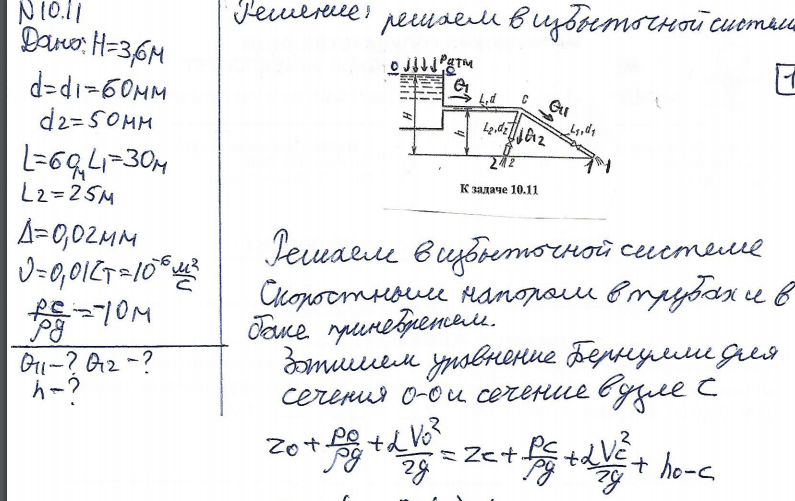 N10.11
Дано: H=3,6м
d=d1=60мм
d2=50мм
L=60м L1=30м
L2=25м
Δ=0,02мм
ν=0,01Ст=10⁻⁶ м²/с
pc/ρg=-10м
Q1-? Q2-?
h-?
Решение: решаем в избыточной системе
1
0
pатм
0
Q1
L,d
C
Q1
H
h
L2, d2
Q2
L1, d1
2
2
1
1
К задаче 10.11
Решаем в избыточной системе
Скоростным напором в трубах и в
баке принебрежем.
Запишем уравнение Бернулли для
сечения 0-0 и сечение в узле С
z0 + p0/ρg + αV0²/2g = zc + pc/ρg + αVc²/2g + h0-c